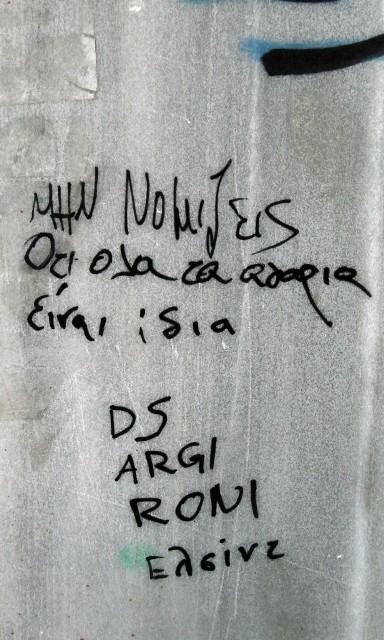 ΜΗΝ ΝΟΜΙΖΕΙΣ
Οτι ολα τα αγορια
είναι ίδια
DS
ARGI
RONI